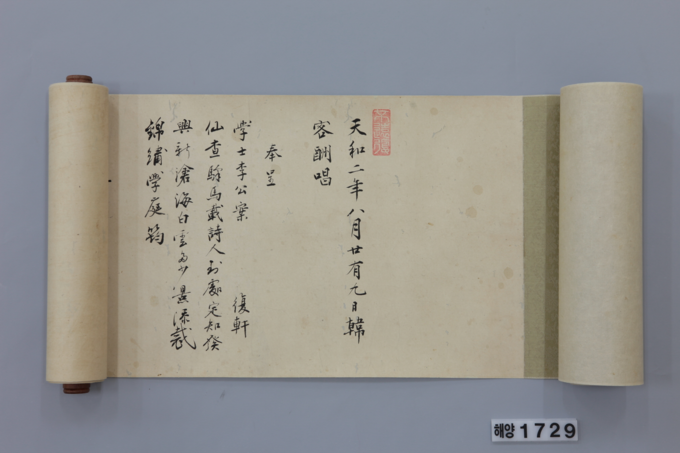 天和二年八月廿有九日韓
客酬唱
奉呈
學士李公案 復軒
仙查駐馬載詩人到處定知發
興新滄海白雲多少景添裁
錦繡學庭筠
해양 1729